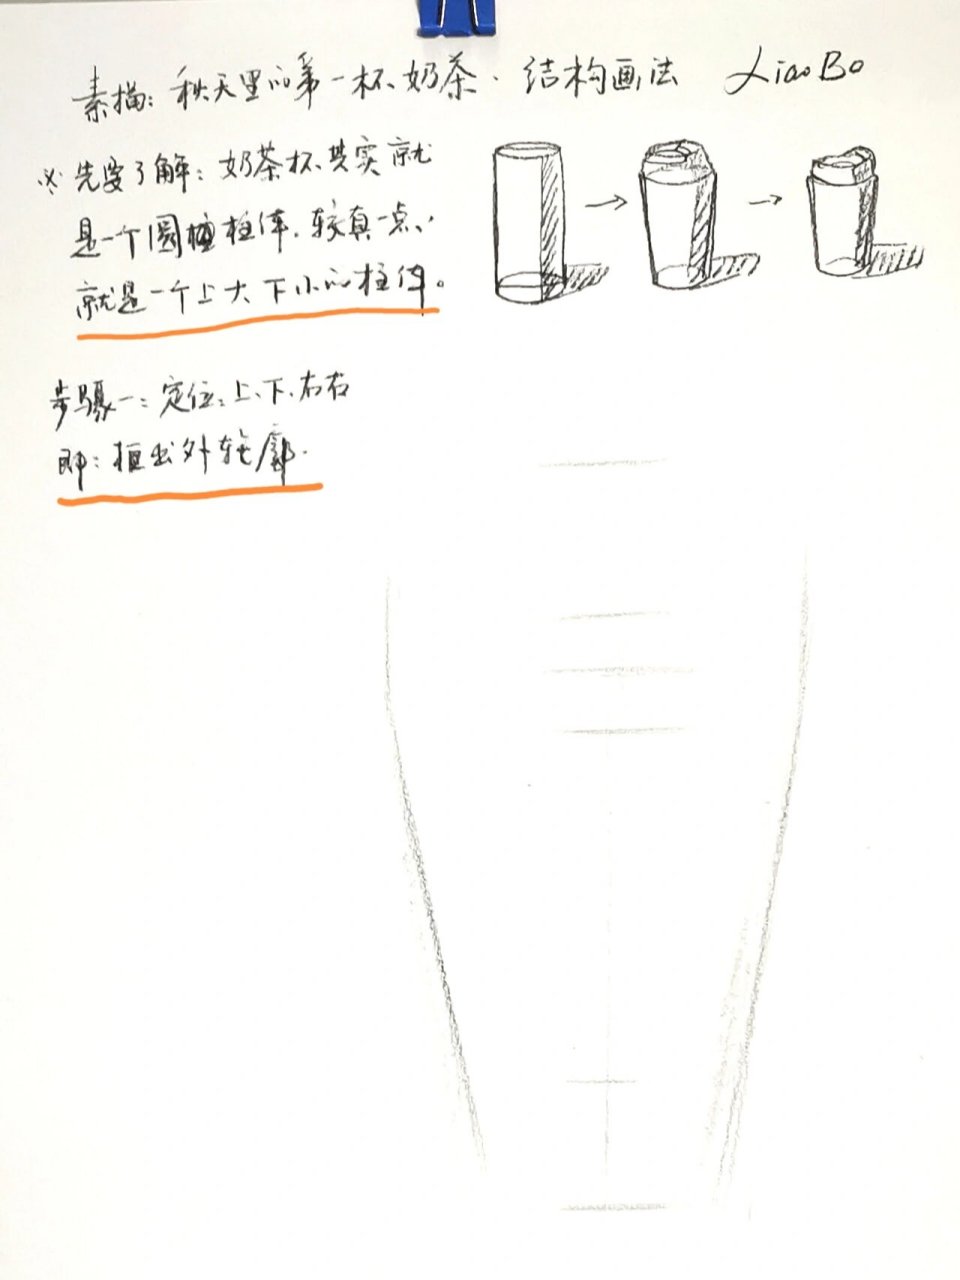 素描：秋天里的第一杯奶茶·结构画法 LiaoBo
※先要了解：奶茶杯其实就
是一个圆柱体．较真一点，
就是一个上大下小的柱体。
步骤一：定位：上、下、左右
即：框出外轮廓．